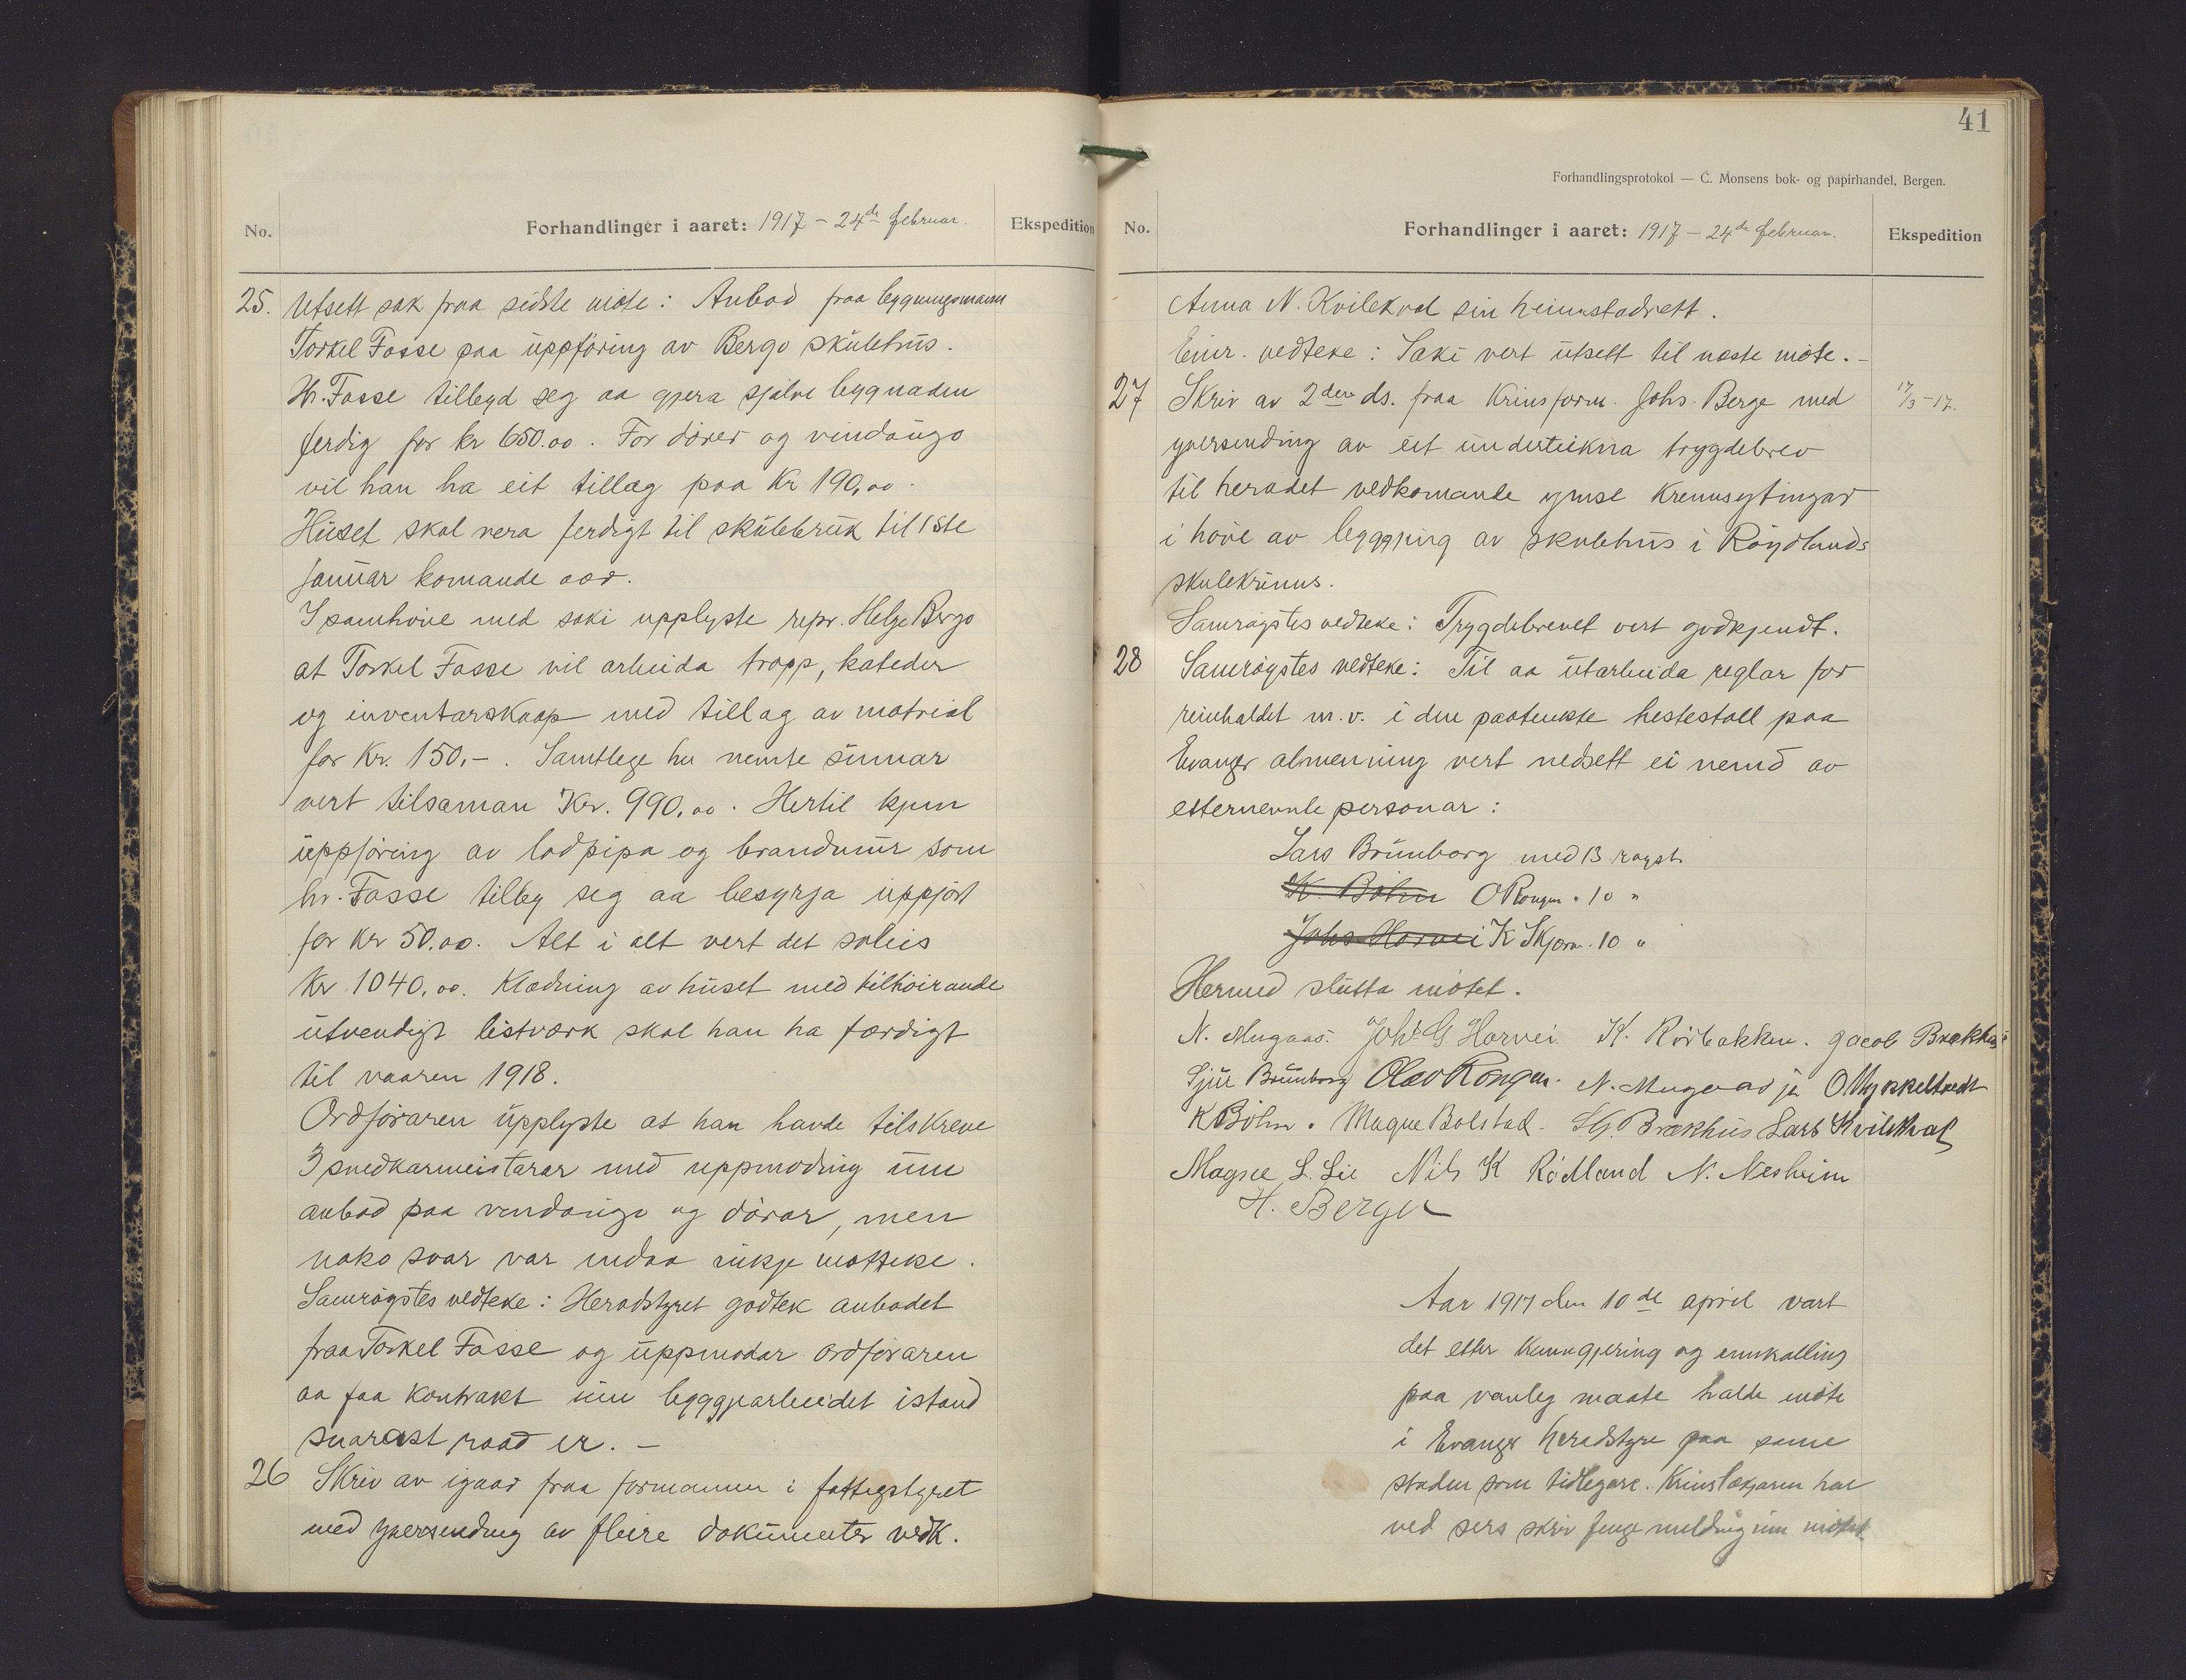 No.
Forhandlinger i aaret: 1917 – 24de februar.
Ekspedition
25. Utsett sak fraa sidste møte: Anbod fraa bygningsmann
Torkel Fosse paa uppføring av Bergo skulehus.
Hr. Fosse tilbyd seg aa gjera sjølve bygnaden
ferdig for kr 650.00. For dører og vindaugo
vil han ha eit tillæg paa Kr 190,00.
Huset skal vera ferdigt til skulebruk til 1ste
januar komande aar.
I samhøve med saki upplyste repr. Helge Bergo
at Torkel Fosse vil arbeida trapp, kateder
og inventarskaap med tillag av matrial
for Kr. 150.–. Samtlege her nemte summar
vert tilsaman Kr. 990,00. Hertil kjem
uppføring av lodpipa og brandmur som
hr. Fosse tilby seg aa besyrja uppført
for Kr 50.00. Alt i alt vert det soleis
Kr. 1040,00. Klædning av huset med tilhøirande
utvendigt listværk skal han ha færdigt
til vaaren 1918.
Ordføraren upplyste at han havde tilskreve
3 snedkarmeistarar med uppmoding um
anbod paa vindaugo og dørar, men
noko svar var endaa inkje motteke.
Samrøystes vedteke: Heradstyret godtek anbodet
fraa Torkel Fosse og uppmodar ordføraren
aa faa kontrakt um byggjearbeidet istand
snarast raad er. –
26 Skriv av igaar fraa formannen i fattigstyret
med yversending av fleire dokumenter vedk.
41
Forhandlingsprotokol — C. Monsens bok- og papirhandel, Bergen.
No.
Forhandlinger i aaret: 1917 – 24de februar.
Ekspedition
Anna N. Kvilekval sin heimstadrett.
Einr. vedteke: Saki vert utsett til næste møte. –
27 Skriv av 2den ds. fraa Krinsform. Johs. Berge med 17/3–17.
yversending av eit underteikna trygdebrev
til heradet vedkomande ymse krennsytingar
i høve av byggjing av skulehus i Røydlands
skulekrinns.
Samrøystes vedteke: Trygdebrevet vert godkjendt.
28 Samrøystes vedteke: Til aa utarbeida reglar for
reinhaldet m.v. i den paatenkte hestestall paa
Evanger almenning vert nedsett ei nemd av
etternevnte personar:
Lars Brunborg med 13 røyst.
K. Bøhn O Rongen " 10 "
Johs Horvei K Skjerv. 10 "
Hermed slutta møtet.
N. Mugaas. Joh. G. Horvei. K. Rørbakken. Jacob Brækhus
Sjur Brunborg Olav Rongen. N. Mugaas jr O Mykkeltvedt
K Bøhn. Magne Bolstad. St. Brækhus Lars Kvilekval
Magne L. Lie Nils K Rødland N. Nesheim
H. Berge
Aar 1917 den 10de april vart
det etter kunngjering og innkalling
paa vanleg maate halde møte
i Evanger heradstyre paa same
staden som tidlegare. Krinslækjaren har
ved sers skriv fenge melding um møtet.